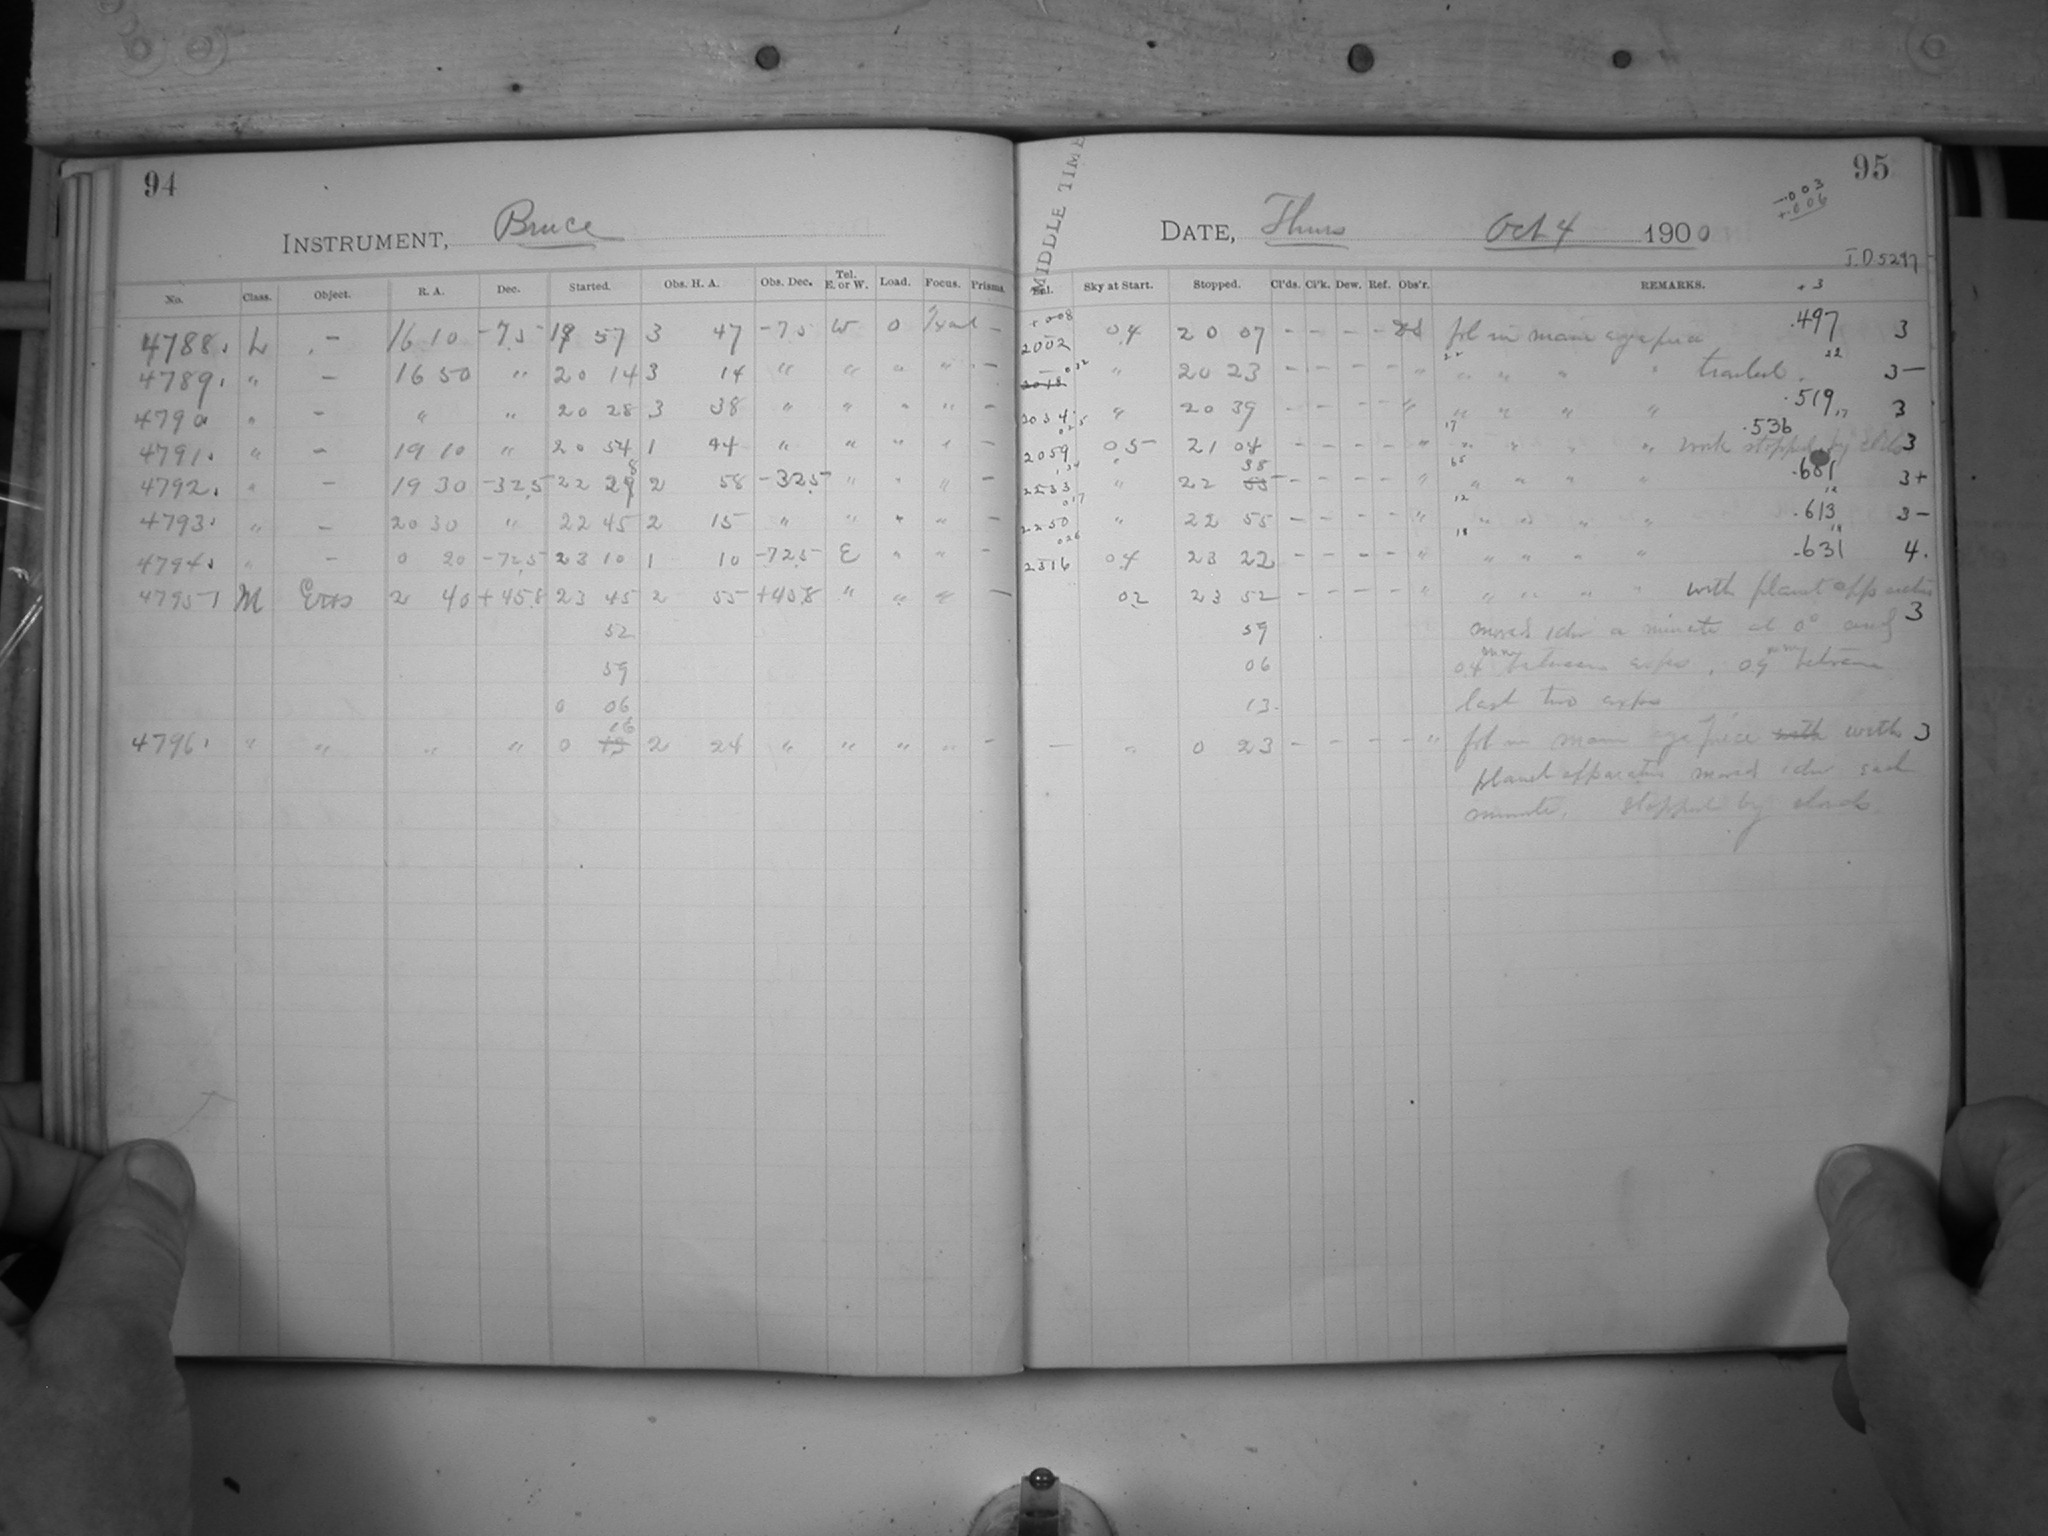 94
INSTRUMENT, Bruce
No. Class. Object. R. A. Dec. Started. Obs. H. A. Obs. Dec. Tel. E. or W. Load. Focus. Prisms.
4788. L - 16 10 -75 19 57 3 47 -75 W 0 -
4789. " - 16 50 " 20 14 3 14 " " " " -
4790 " - " " 20 28 3 38 " " " " -
4791. " - 19 10 " 20 54 1 44 " " " " -
4792. " - 19 30 -32.5 22 28 2 58 -32.5 " " " -
4793. " - 20 30 " 22 45 2 15 " " " " -
4794. " - 0 20 -72.5 23 10 1 10 -72.5 E " " -
4795 M Eros 2 40 +45.8 23 45 2 55 +45.8 " " " -
52
59
0 06
4796. " " " " 0 16 2 24 " " " " -
MIDDLE TIME
95
DATE, Thurs Oct 4 1900
-.003
+.006
J.D. 5297
Sky at Start. Stopped. Cl'ds. Cl'k. Dew. Ref. Obs'r. REMARKS. +3
2002 04 20 07 - - - - fol in main eyepiece .497 3
2018 " 20 23 - - - - " " " " " trailed. 22 3-
2034 " 20 39 - - - - " " " " " .519 3
2059 05 21 04 - - - - " " " " " work stopped by clds .536 3
2233 " 22 38 - - - - " " " " " .681 3+
2250 " 22 55 - - - - " " " " " .613 3-
2316 04 23 22 - - - - " " " " " .631 4.
02 23 52 - - - - " " " " " with planet apparatus 3
59 moved 1 div a minute at 0° and
06 04 between exps, 09 between
13 last two exps
- " 0 23 - - - - " fol in main eyepiece with with 3
planet apparatus moved 1 div each
minute. stopped by clouds